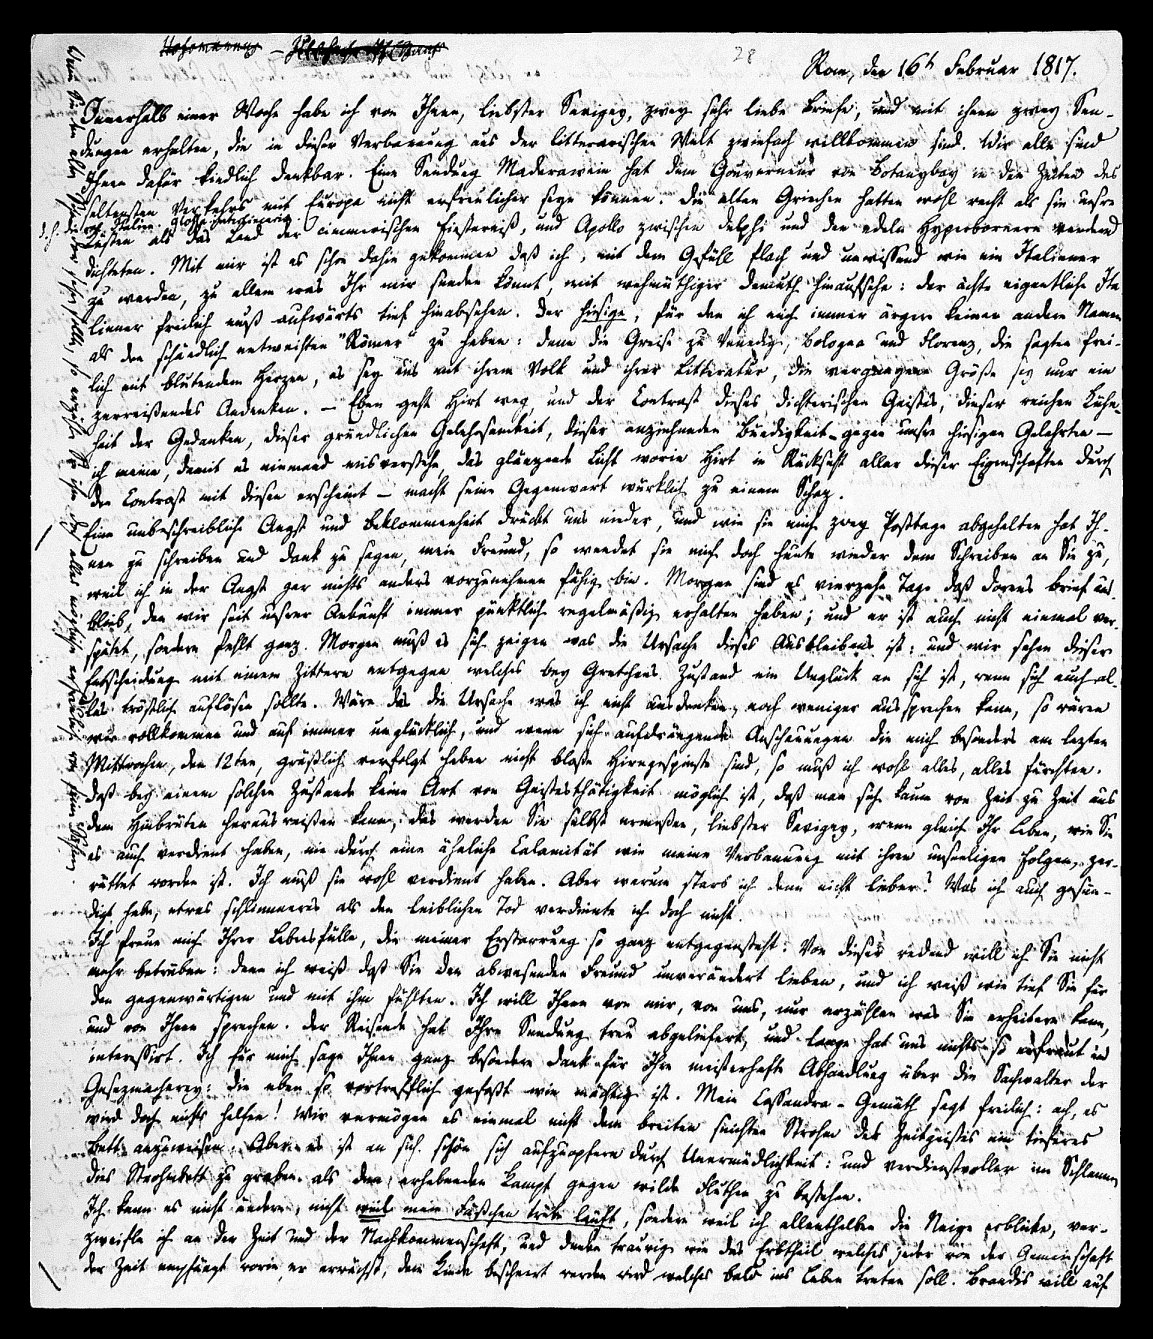 Rom, den 16t Februar 1817.
Innerhalb einer Woche habe ich von Ihnen, liebster Savigny, zwey sehr liebe Briefe, und mit ihnen zwey Sen-
dungen erhalten, die in dieser Verbannung aus der litterarischen Welt zwiefach willkommen sind. Wir alle sind
Ihnen dafür kindlich dankbar. Eine Sendung Maderawein hat dem Gouverneur von Botanybay in den Zeiten des
seltensten Verkehrs mit Europa nicht erfreulicher seyn können. Die alten Griechen hatten wohl recht als sie unsre
d. h. die von Italien
Küsten als das Land der cimmerischen Finsterniß, und Apollo zwischen Delphi und den edeln Hyperboreern wandernd
dichteten. Mit mir ist es schon dahin gekommen daß ich, mit dem Gefühl flach und unwissend wie ein Italiener
zu werden, zu allem was Ihr mir senden könnt, mit wehmüthiger Demuth hinaufsehe: der ächte eigentliche Ita-
liener freilich muß aufwärts tief hinabsehen. Der hiesige, für den ich mich immer ärgere keinen andern Namen
als den schändlich entweihten "Römer" zu haben: denn die Greise zu Venedig, Bologna und Florenz, die sagten frei-
lich mit blutendem Herzen, es sey aus mit ihrem Volk und ihrer Litteratur, die vergangene Größe sey nur ein
zerreißendes Andenken. — Eben geht Hirt weg und der Contrast dieses dichterischen Geistes, dieser reichen Kühn-
heit der Gedanken, dieser gründlichen Gelehrsamkeit, dieser anziehenden Bündigkeit gegen unsre hiesigen Gelehrten —
ich meine, damit es niemand misverstehe, das glänzende Licht worin Hirt in Rücksicht aller dieser Eigenschaften durch
den Contrast mit diesen erscheint — macht seine Gegenwart würklich zu einem Schaz.
Eine unbeschreibliche Angst und Beklommenheit drückt uns nieder, und wie sie mich zwey Posttage abgehalten hat Ih-
nen zu schreiben und Dank zu sagen, mein Freund, so wendet sie mich doch heute wieder dem Schreiben an Sie zu,
weil ich in der Angst gar nichts anders vorzunehmen fähig bin. Morgen sind es vierzehn Tage daß Dorens Brief aus-
blieb, den wir seit unsrer Ankunft immer pünktlich regelmäßig erhalten haben; und er ist auch nicht einmal ver-
spätet, sondern fehlt ganz. Morgen muß es sich zeigen was die Ursache dieses Ausbleibens ist: und wir sehen dieser
Entscheidung mit einem Zittern entgegen welches bey Gretchens Zustand ein Unglück an sich ist, wenn sich auch al-
les tröstlich auflösen sollte. Wäre das die Ursache was ich nicht ausdenken, noch weniger aussprechen kann, so wären
wir vollkommen und auf immer unglücklich, und wenn sich aufdrängende Anschauungen die mich besonders am lezten
Mittwochen, den 12ten, gräßlich verfolgt haben nicht bloße Hirngespinste sind, so muß ich wohl alles, alles fürchten.
Daß bey einem solchen Zustande keine Art von Geistesthätigkeit möglich ist, daß man sich kaum von Zeit zu Zeit aus
dem Hinbrüten herausreißen kann, das werden Sie selbst ermessen, liebster Savigny, wenn gleich Ihr Leben, wie Sie
es auch verdient haben, nie durch eine ähnliche Calamität wie meine Verbannung mit ihren unseligen Folgen, zer-
rüttet worden ist. Ich muß sie wohl verdient haben. Aber warum starb ich denn nicht lieber? Was ich auch gesün-
digt habe, etwas schlimmeres als den leiblichen Tod verdiente ich doch nicht.
Ich freue mich Ihrer Lebensfülle, die meiner Erstarrung so ganz entgegensteht: Von dieser redend will ich Sie nicht
mehr betrüben: denn ich weiß daß Sie den abwesenden Freund unverändert lieben, und ich weiß wie tief Sie für
den gegenwärtigen und mit ihm fühlten. Ich will Ihnen von mir, von uns, nur erzählen was Sie erheitern kann,
und von Ihnen sprechen. Der Reisende hat Ihre Sendung treu abgeliefert, und lange hat uns nichts so erfreut und
interessirt. Ich für mich sage Ihnen ganz besondern Dank für Ihre meisterhafte Abhandlung über die Sachwalter der
Gesezmacherey: die eben so vortrefflich gefaßt wie mächtig ist. Mein Cassandra-Gemüth sagt freilich: ach, es
wird doch nichts helfen! Wir vermögen es einmal nicht dem breiten seichten Strohm des Zeitgeistes ein tieferes
Bett anzuweisen. Aber es ist an sich schön sich aufzuopfern durch Unermüdlichkeit: und verdienstvoller im Schlamm
des Strohmbetts zu graben als den erhebenden Kampf gegen wilde Fluthen zu bestehen.
Ich kann es nicht ändern, nicht weil mein Fäßchen trübe läuft, sondern weil ich allenthalben die Neige erblicke, ver-
zweifle ich an der Zeit und der Nachkommenschaft, und denke traurig wie das Erbtheil welches jeder von der Gemeinschaft
der Zeit empfängt worin er erwächst, dem Kinde bescheert werden wird welches bald ins Leben treten soll. Brandis will auf